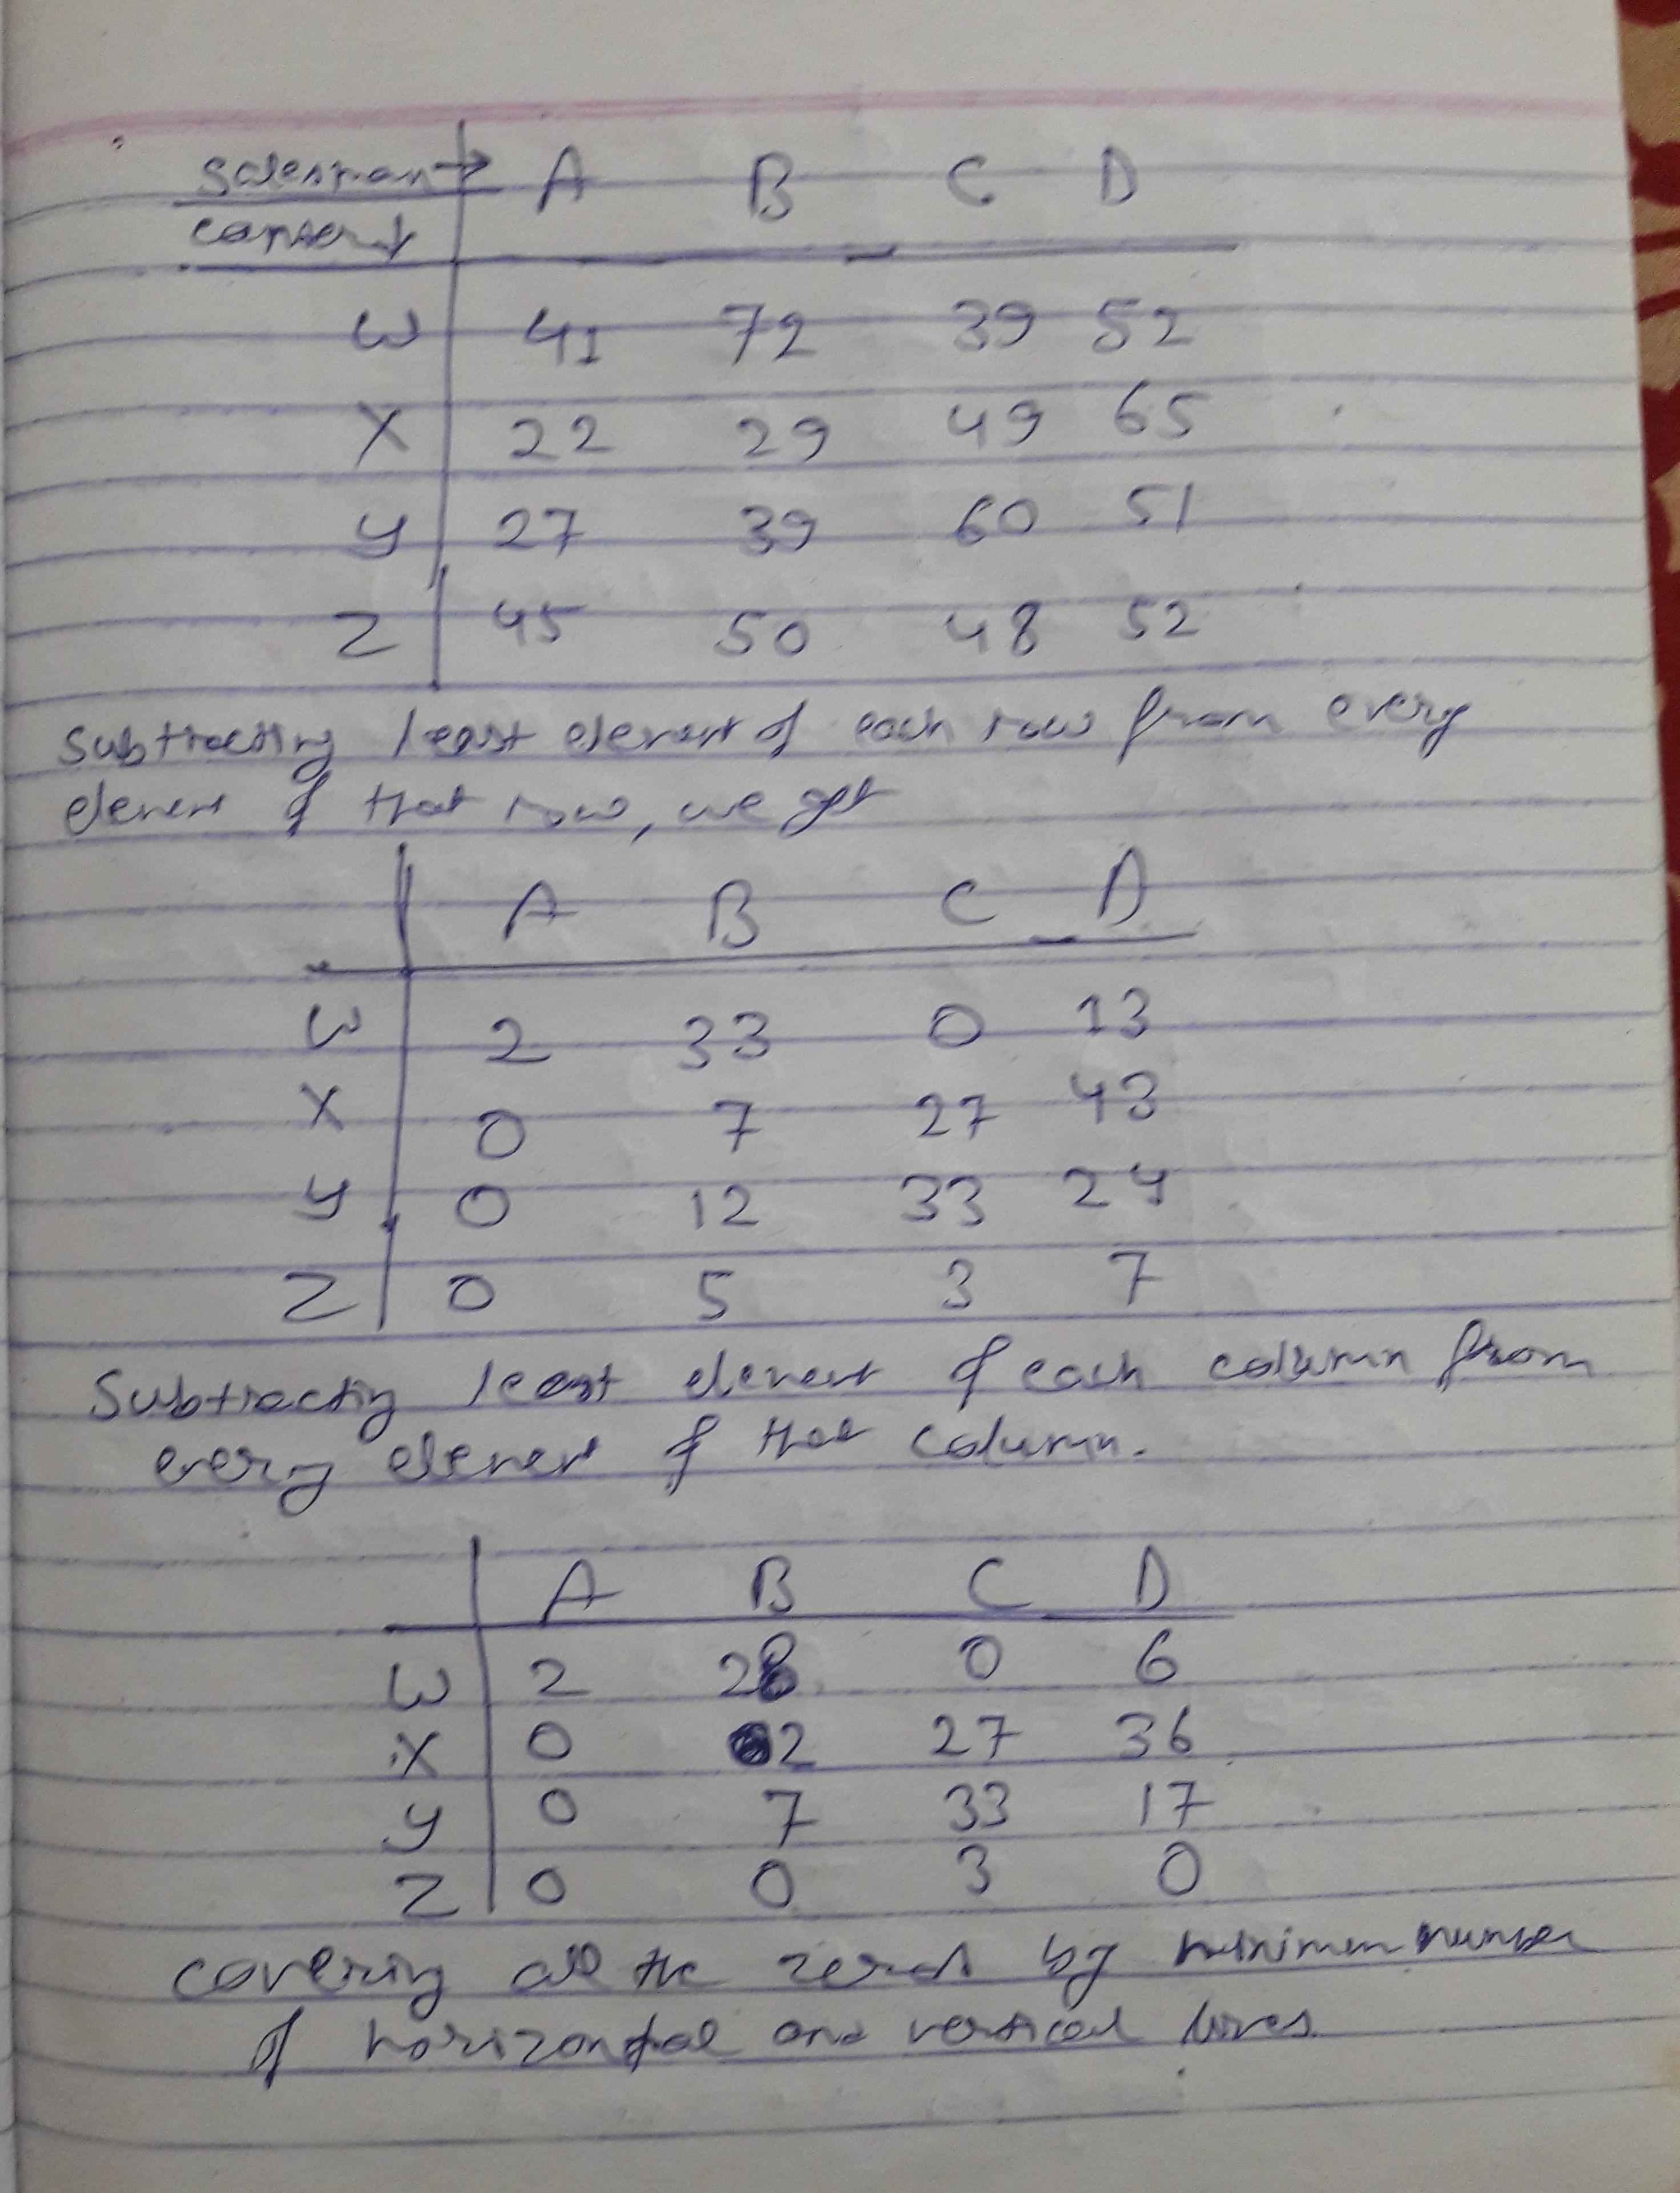 Salesman → A B C D
W 41 72 39 52
X 22 29 49 65
Y 27 39 60 51
Z 45 50 48 52
Subtracting least element of each row from every
element of that row, we get
A B C D
W 2 33 0 13
X 0 7 27 43
Y 0 12 33 24
Z 0 5 3 7
Subtracting least element of each column from
every element of that column.
A B C D
W 2 28 0 6
X 0 2 27 36
Y 0 7 33 17
Z 0 0 3 0
covering all the zeros by minimum number
of horizontal and vertical lines.